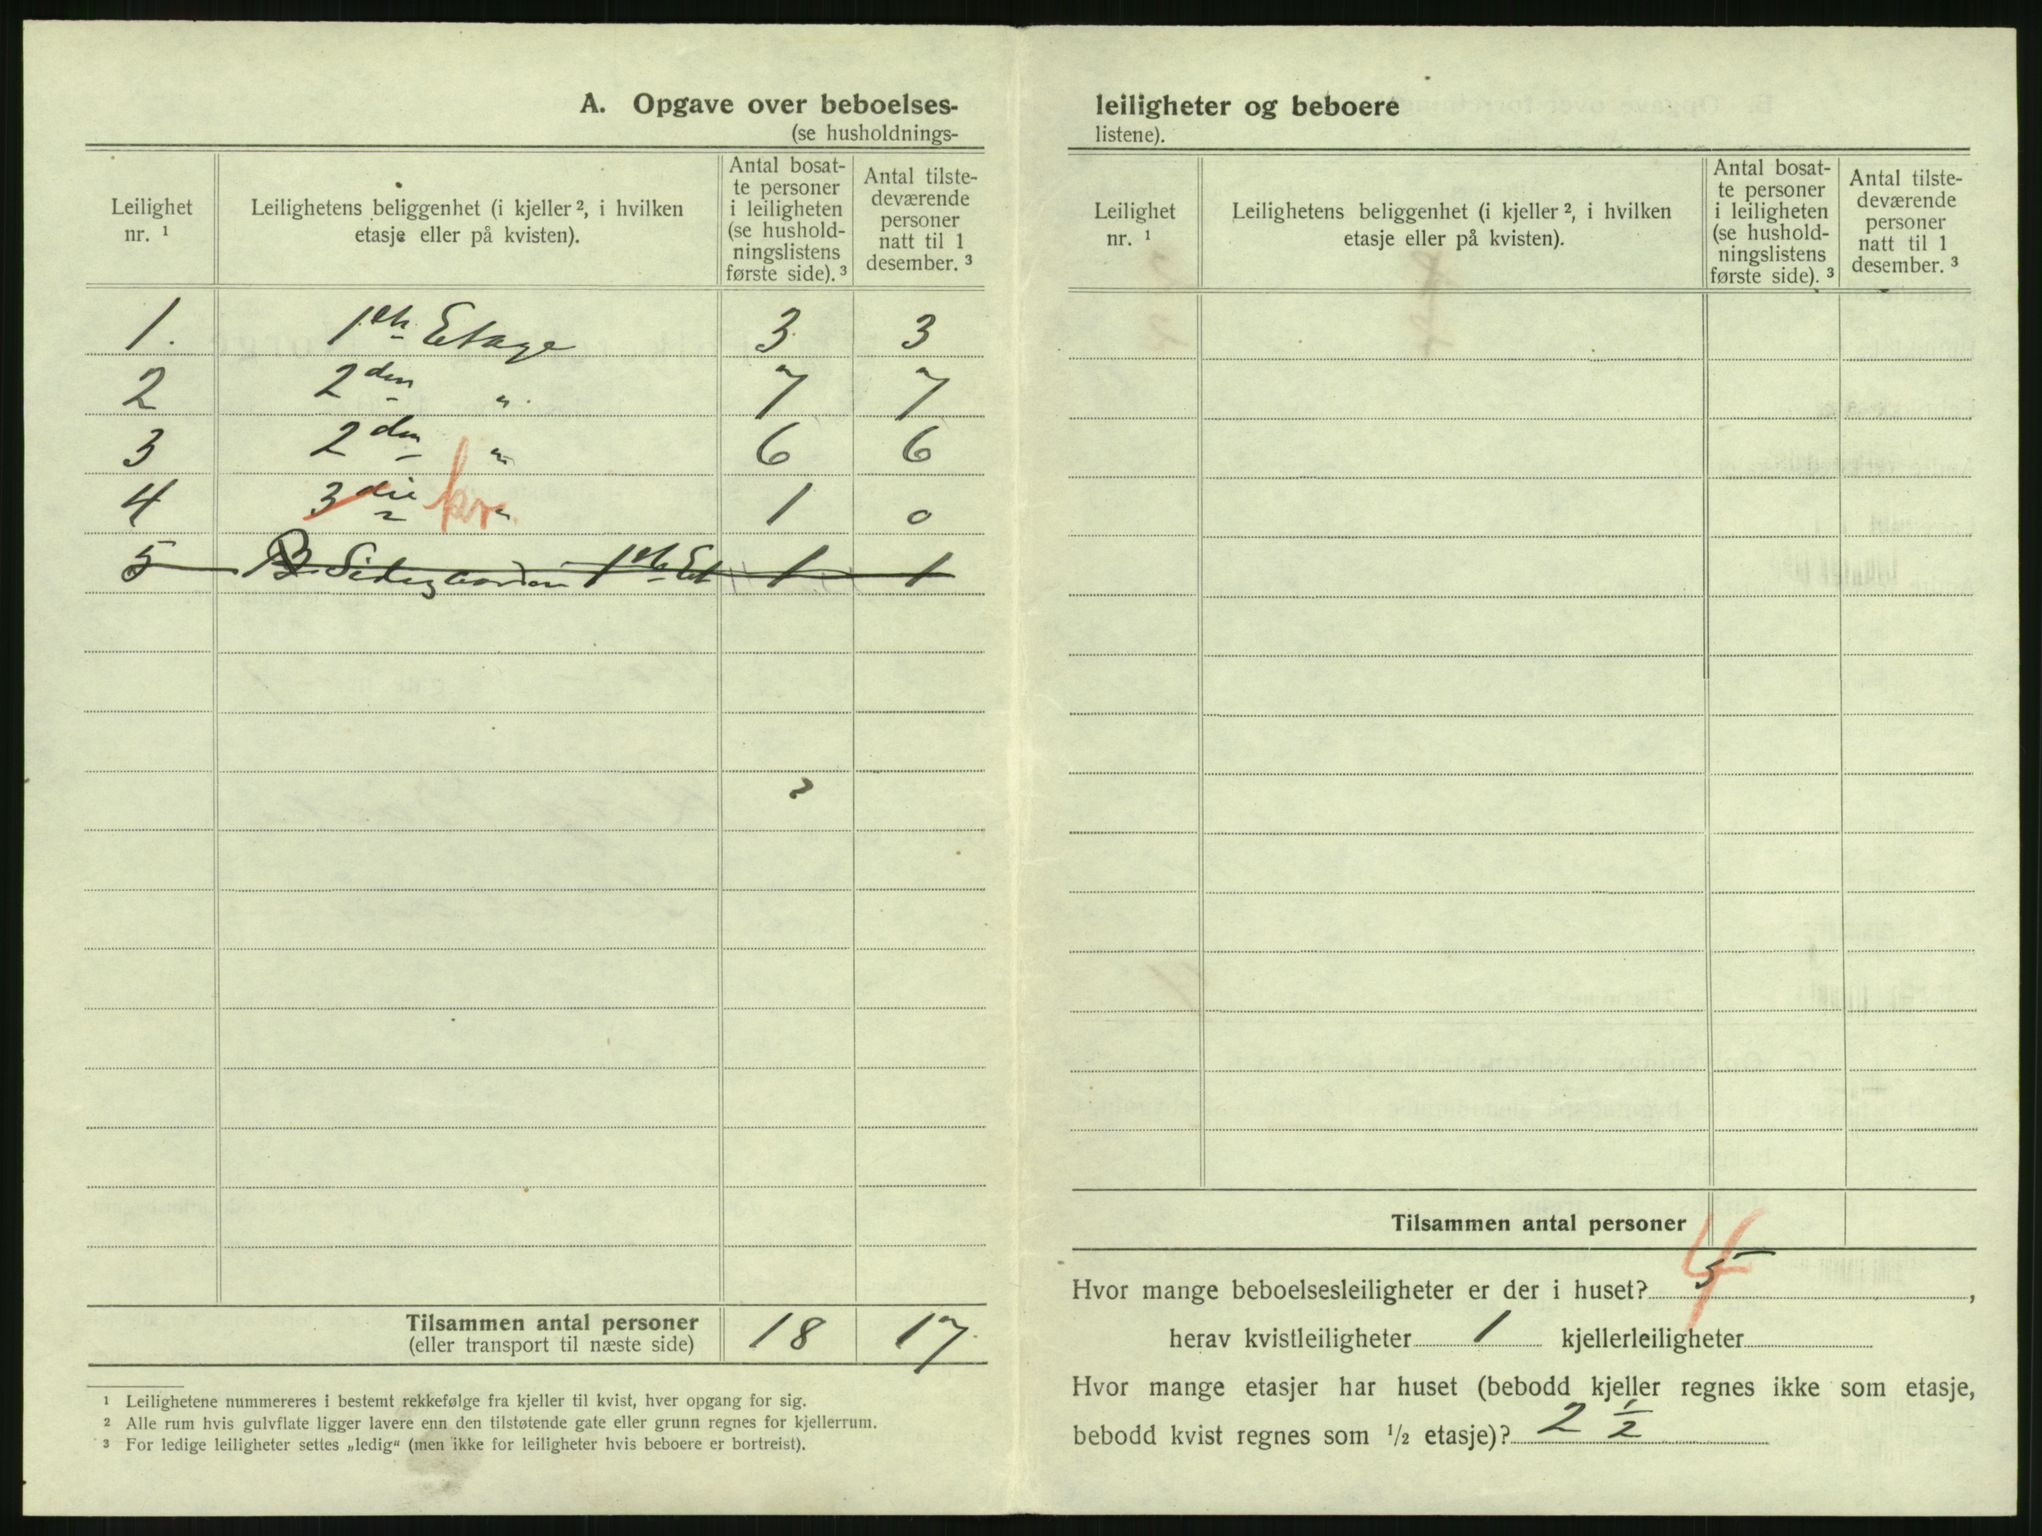 A. Opgave over beboelses-
(se husholdnings-
Leilighet nr. ¹
Leilighetens beliggenhet (i kjeller ², i hvilken etasje eller på kvisten).
Antal bosat-
te personer
i leiligheten
(se hushold-
ningslistens
første side). ³
Antal tilste-
deværende
personer
natt til 1
desember. ³
1. 1ste Etage 3 3
2 2den " 7 7
3 2den " 6 6
4 3die " kv. 1 0
5 B. Sidegaarden 1ste Et 1 1
Tilsammen antal personer 18 17
(eller transport til næste side)
¹ Leilighetene nummereres i bestemt rekkefølge fra kjeller til kvist, hver opgang for sig.
² Alle rum hvis gulvflate ligger lavere enn den tilstøtende gate eller grunn regnes for kjellerrum.
³ For ledige leiligheter settes „ledig“ (men ikke for leiligheter hvis beboere er bortreist).
leiligheter og beboere
listene).
Leilighet nr. ¹
Leilighetens beliggenhet (i kjeller ², i hvilken etasje eller på kvisten).
Antal bosat-
te personer
i leiligheten
(se hushold-
ningslistens
første side). ³
Antal tilste-
deværende
personer
natt til 1
desember. ³
Tilsammen antal personer
Hvor mange beboelsesleiligheter er der i huset? 5 4,
herav kvistleiligheter 1 kjellerleiligheter
Hvor mange etasjer har huset (bebodd kjeller regnes ikke som etasje,
bebodd kvist regnes som ½ etasje)? 2 ½